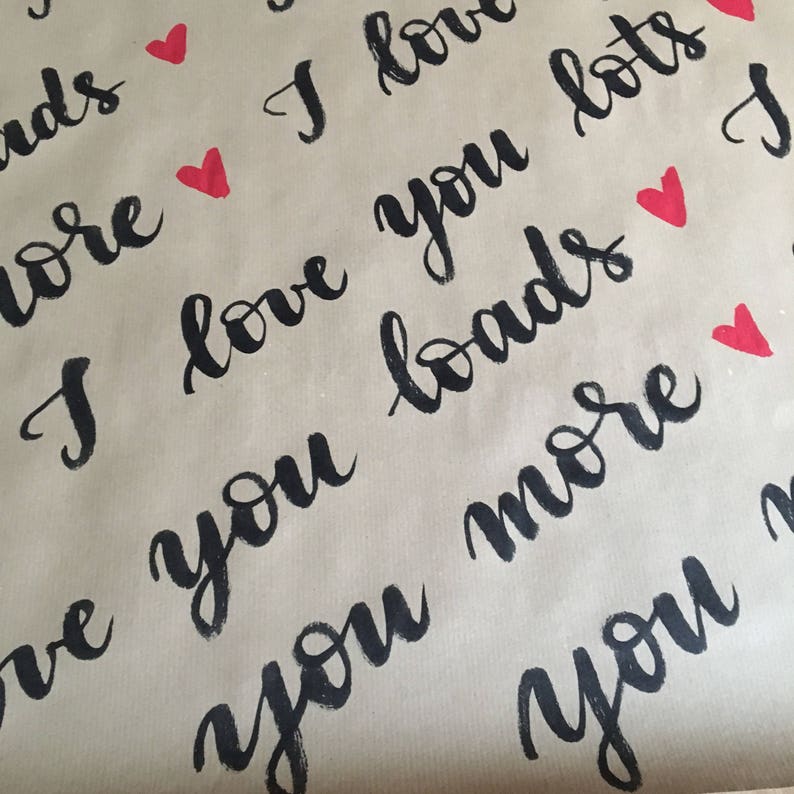 ads ♥
more ♥ I love
I love you lots ♥
ove you loads ♥ I
you more ♥
you